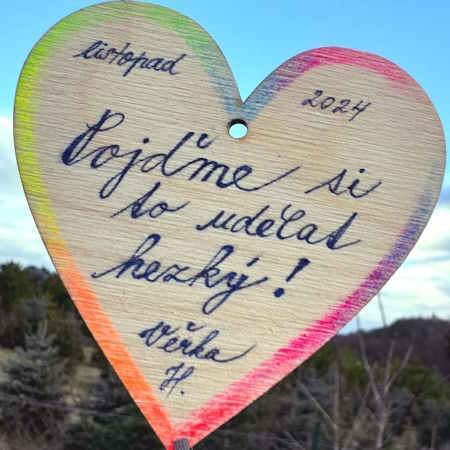 listopad
2024
Pojďme si
to udělat
hezký!
Věrka
H.